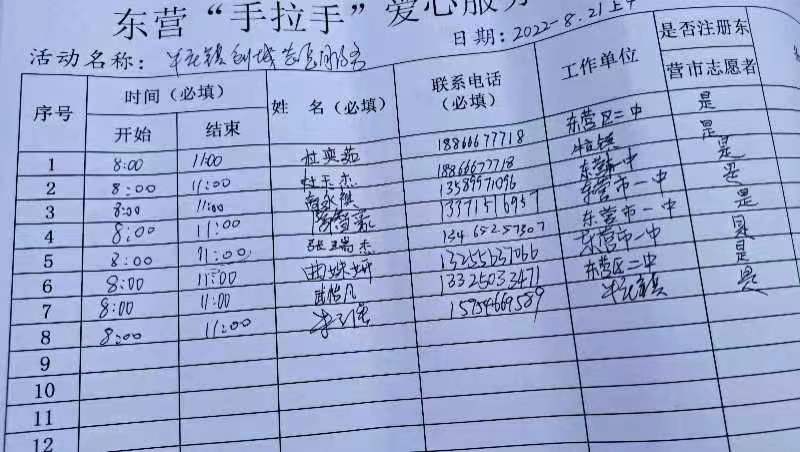 东营“手拉手”爱心服务
活动名称： 日期：2022-8.21上午
序号 时间（必填） 姓 名（必填） 联系电话（必填） 工作单位 是否注册东营市志愿者
开始 结束
1 8:00 11:00 杜奕茹 18866677718 东营区二中 是
2 8:00 11:00 杜玉杰 18866677718 是
3 8:00 11:00 13589971096 东营一中 是
4 8:00 11:00 13371516957 东营市一中 是
5 8:00 11:00 张瑞杰 13465257307 东营市一中 是
6 8:00 11:00 曲姝妍 东营市一中 是
7 8:00 11:00 武怡凡 13325033471 东营区二中 是
8 8:00 11:00 15954669589 牛庄镇 是
9
10
11
12